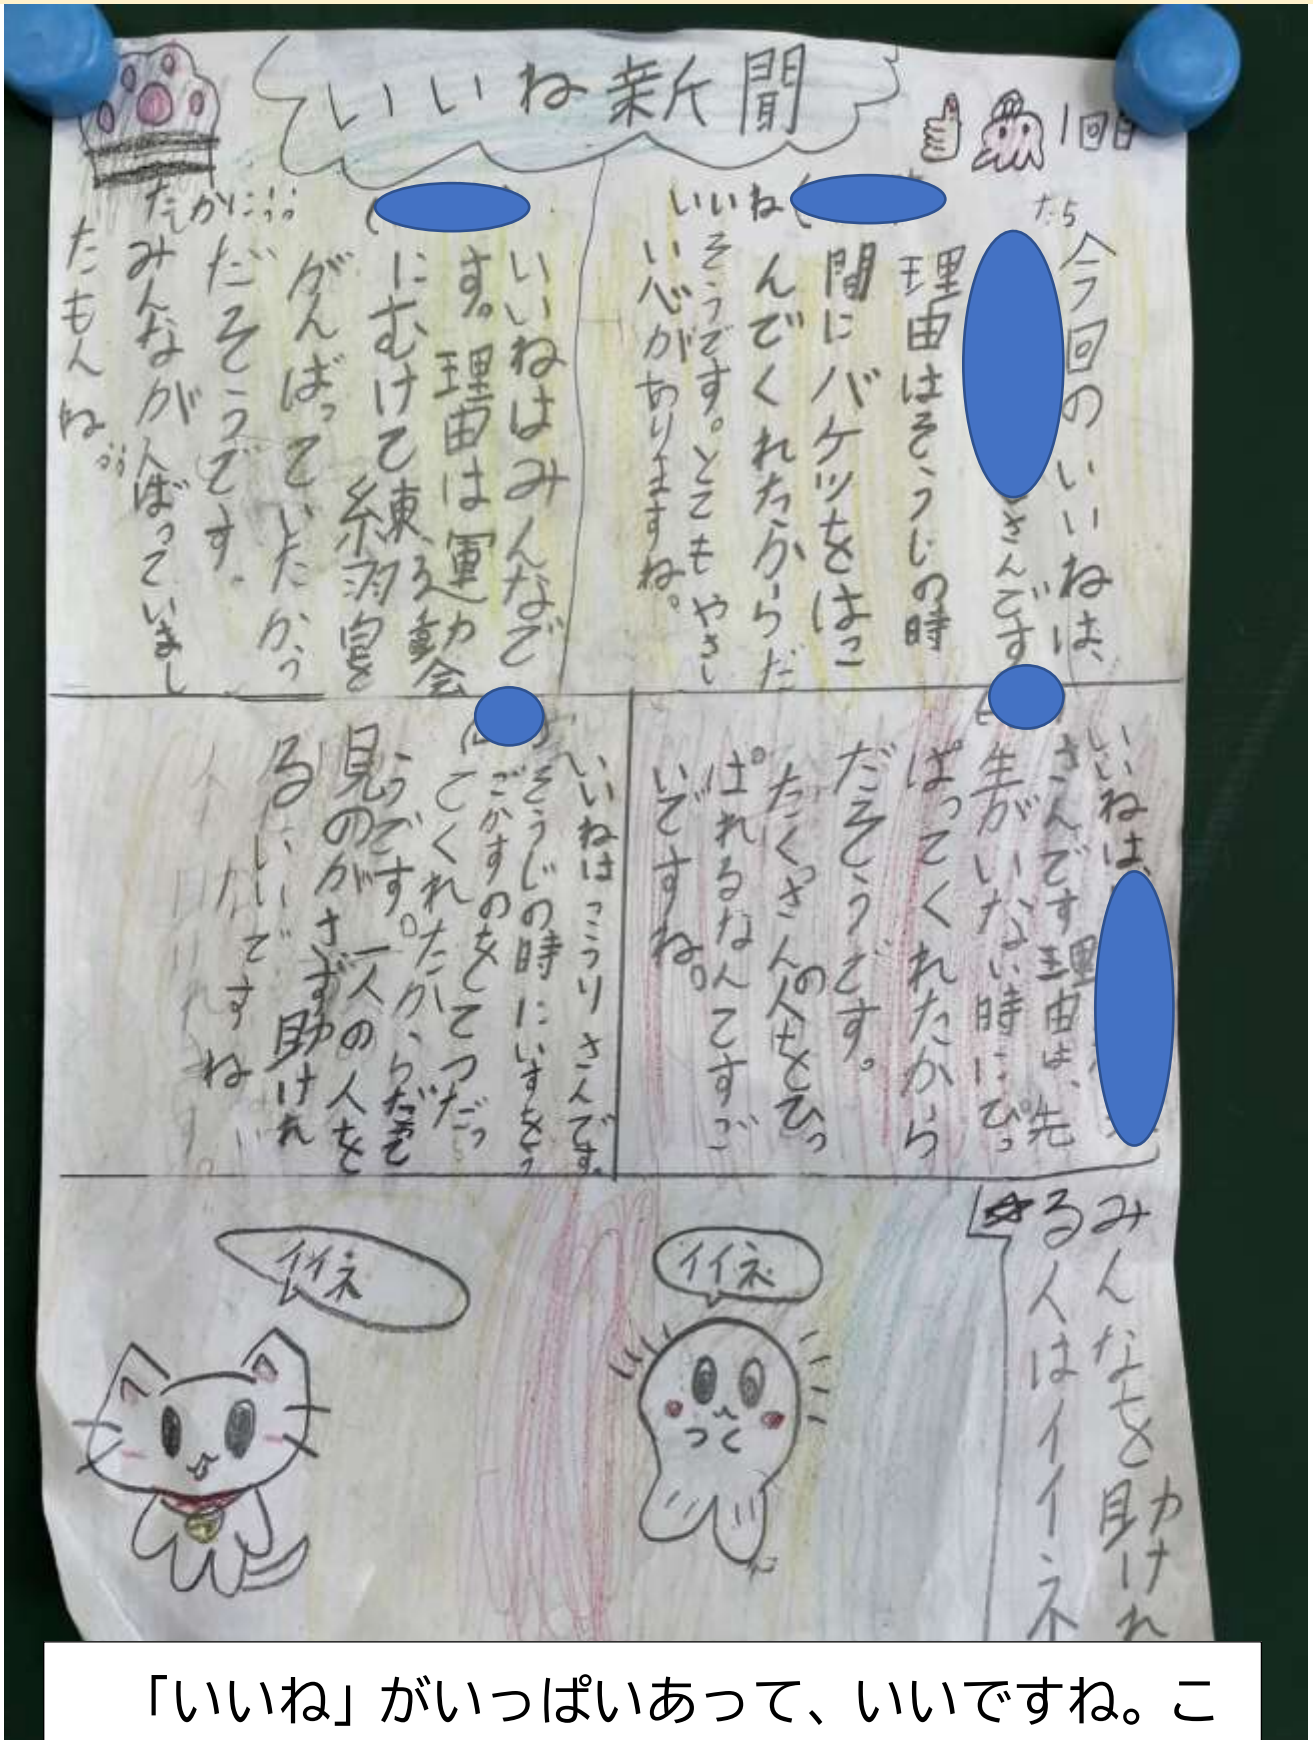 いいね新聞
1回目
いいね(
今回のいいねは、
さんです
理由はそうじの時
間にバケツをはこ
んでくれたからだ
そうです。とてもやさし
い心がありますね。
いいねはみんなで
す。理由は運動会
にむけて練習を
がんばっていたから
だそうです。
たしかに
みんながんばっていまし
たもんね。
いいねは、
さんです理由は、先
生がいない時にひっ
ぱってくれたから
だそうです。
たくさんの人をひっ
ぱれるなんてすご
いですね。
いいねはこうりさんです。
そうじの時にいすをう
ごかすのをてつだっ
てくれたからだそ
うです。一人の人を
見のがさず助けれ
るいいですね
みんなを助けれ
る人はイイネ
イイネ
イイネ
「いいね」がいっぱいあって、いいですね。こ